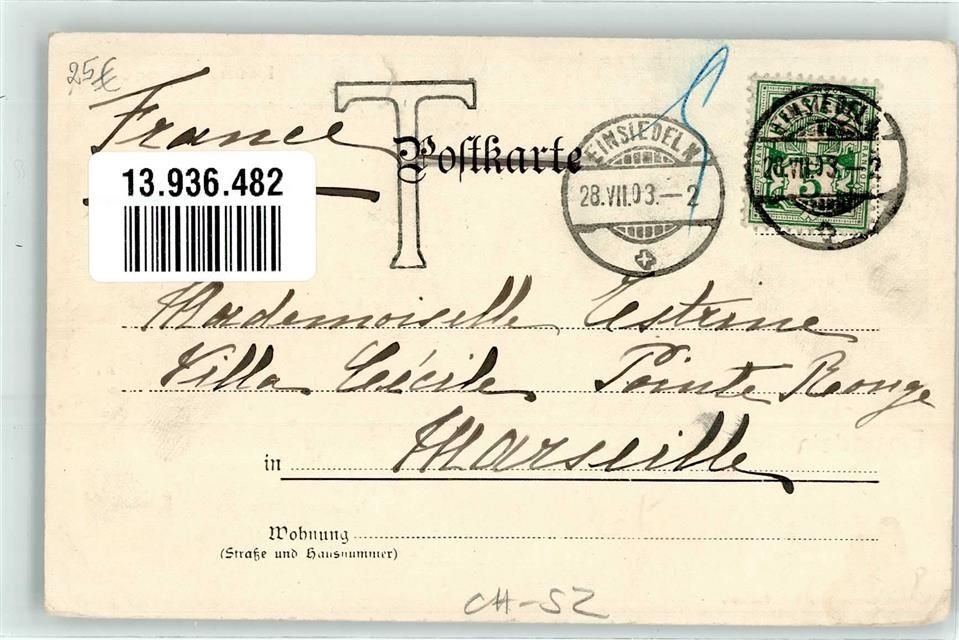 25€
France
T
Postkarte
13.936.482
EINSIEDELN
28.VII.03.–2
EINSIEDELN
28.VII.03.–2
5
Mademoiselle Estrine
Villa Cécile Pointe Rouge
in Marseille
Wohnung
(Straße und Hausnummer)
CH-SZ